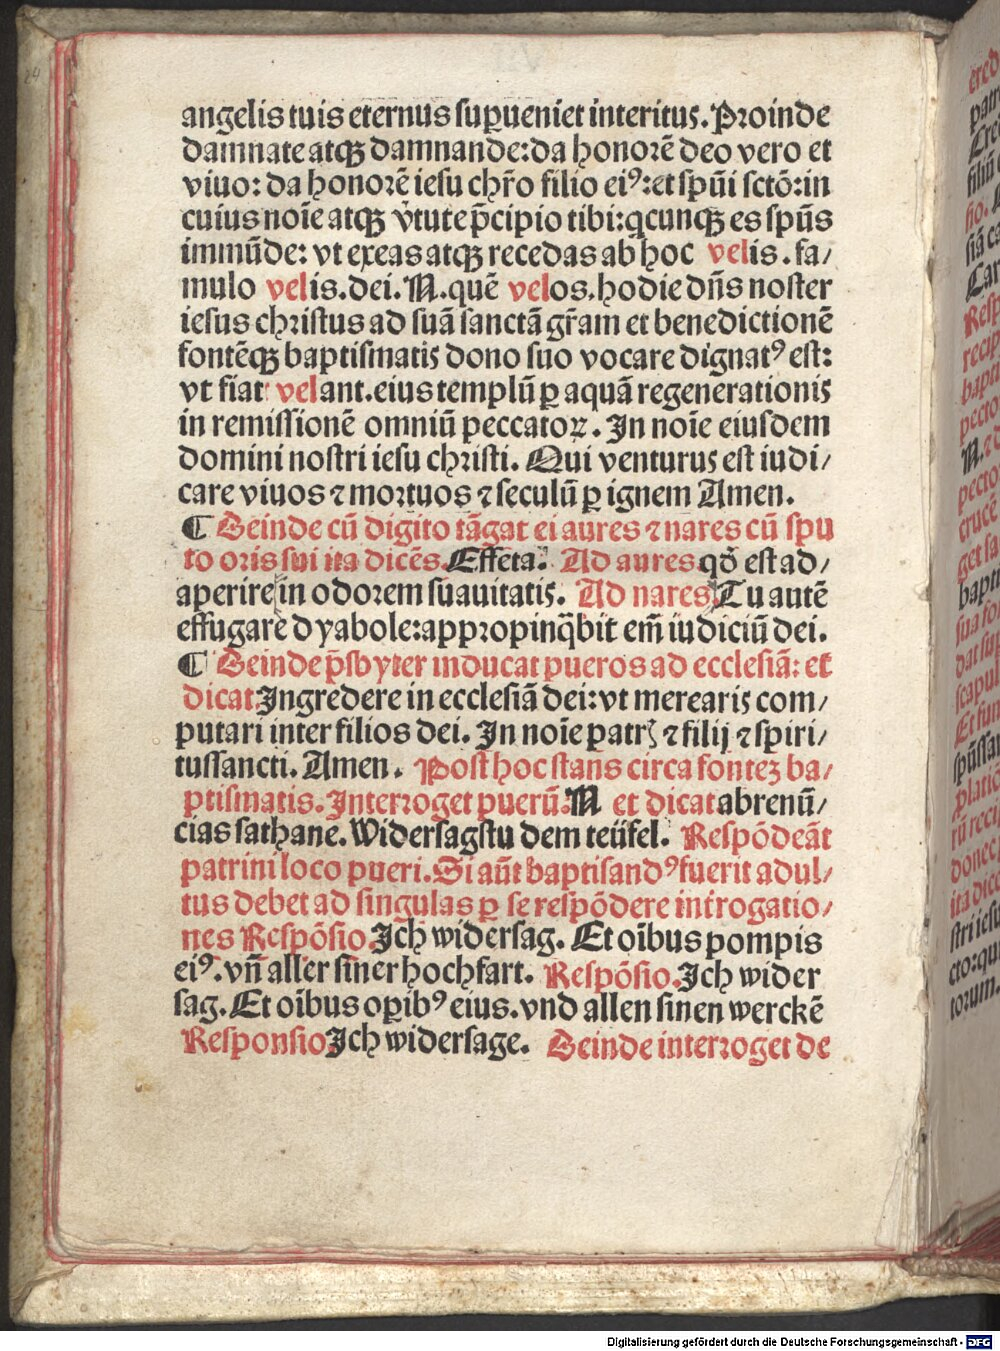 angelis tuis eternus supueniet interitus. Proinde
damnate atqꝫ damnande: da honorē deo vero et
viuo: da honorē iesu chr̄o filio eiꝰ: et spūi sctō: in
cuius noīe atqꝫ v̄tute p̄cipio tibi: qcunqꝫ es spūs
immūde: vt exeas atqꝫ recedas ab hoc velis. fa/
mulo velis. dei. N. quē velos. hodie dn̄s noster
iesus christus ad suā sanctā gr̄am et benedictionē
fontēqꝫ baptismatis dono suo vocare dignatꝰ est:
vt fiat velant. eius templū ꝑ aquā regenerationis
in remissionē omniū peccatoꝝ. In noīe eiusdem
domini nostri iesu christi. Qui venturus est iudi/
care viuos ⁊ mortuos ⁊ seculū ꝑ ignem Amen.
¶ Deinde cū digito tāgat ei aures ⁊ nares cū spu
to oris sui ita dicēs. Effeta. Ad aures qđ est ad/
aperire in odorem suauitatis. Ad nares Tu autē
effugare dyabole: appropinq̄bit em̄ iudiciū dei.
¶ Deinde p̄sbyter inducat pueros ad ecclesiā: et
dicat. Ingredere in ecclesiā dei: vt merearis com/
putari inter filios dei. In noīe patrꝭ ⁊ filij ⁊ spiri/
tussancti. Amen. Post hoc stans circa fontez ba/
ptismatis. Interroget puerū. N et dicat abrenū/
cias sathane. Widersagstu dem teüfel. Respōdeāt
patrini loco pueri. Si aūt baptisandꝰ fuerit adul/
tus debet ad singulas ꝑ se respōdere introgatio/
nes Respōsio. Ich widersag. Et oībus pompis
eiꝰ. vn̄ aller siner hochfart. Respōsio. Ich wider
sag. Et oībus opibꝰ eius. vnd allen sinen werckē
Responsio Ich widersage. Deinde interroget de
Digitalisierung gefördert durch die Deutsche Forschungsgemeinschaft - DFG